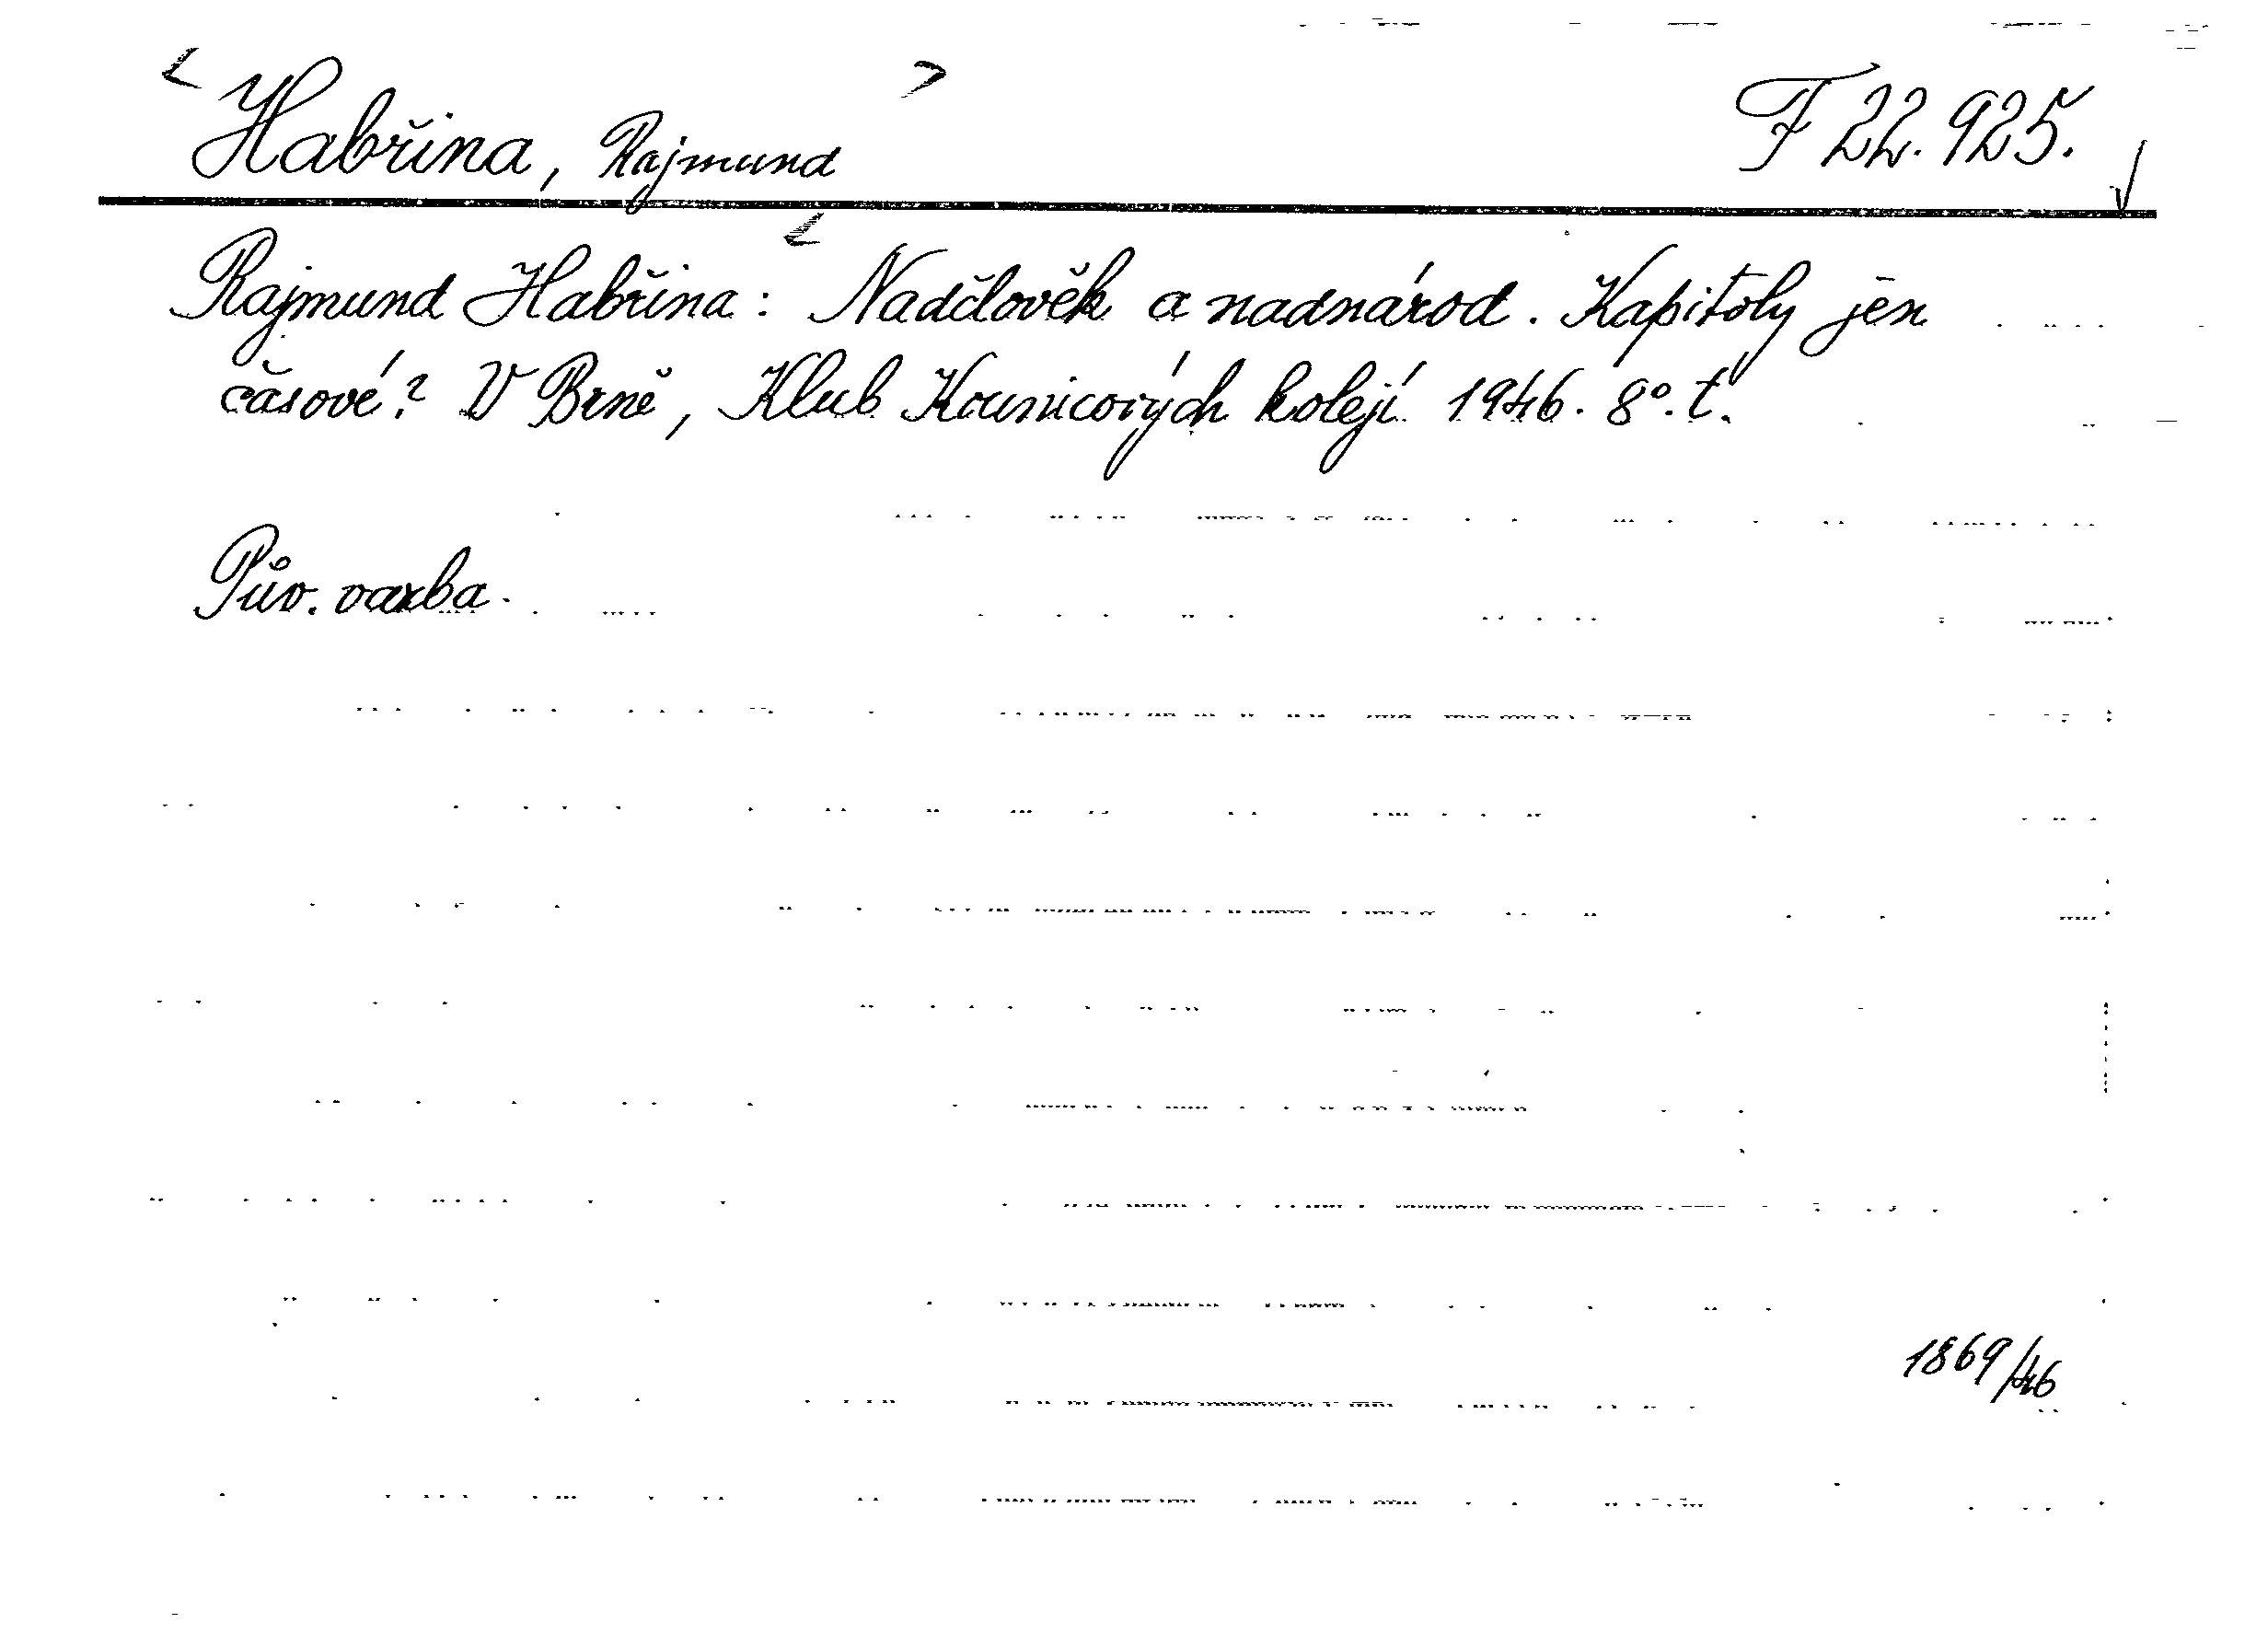 Habřina, Rajmund F 22.925.
Rajmund Habřina: Nadčlověk a nadnárod. Kapitoly jen
časové? V Brně, Klub Kounicových kolejí 1946. 8°. t.
Pův. vazba.
1869/46